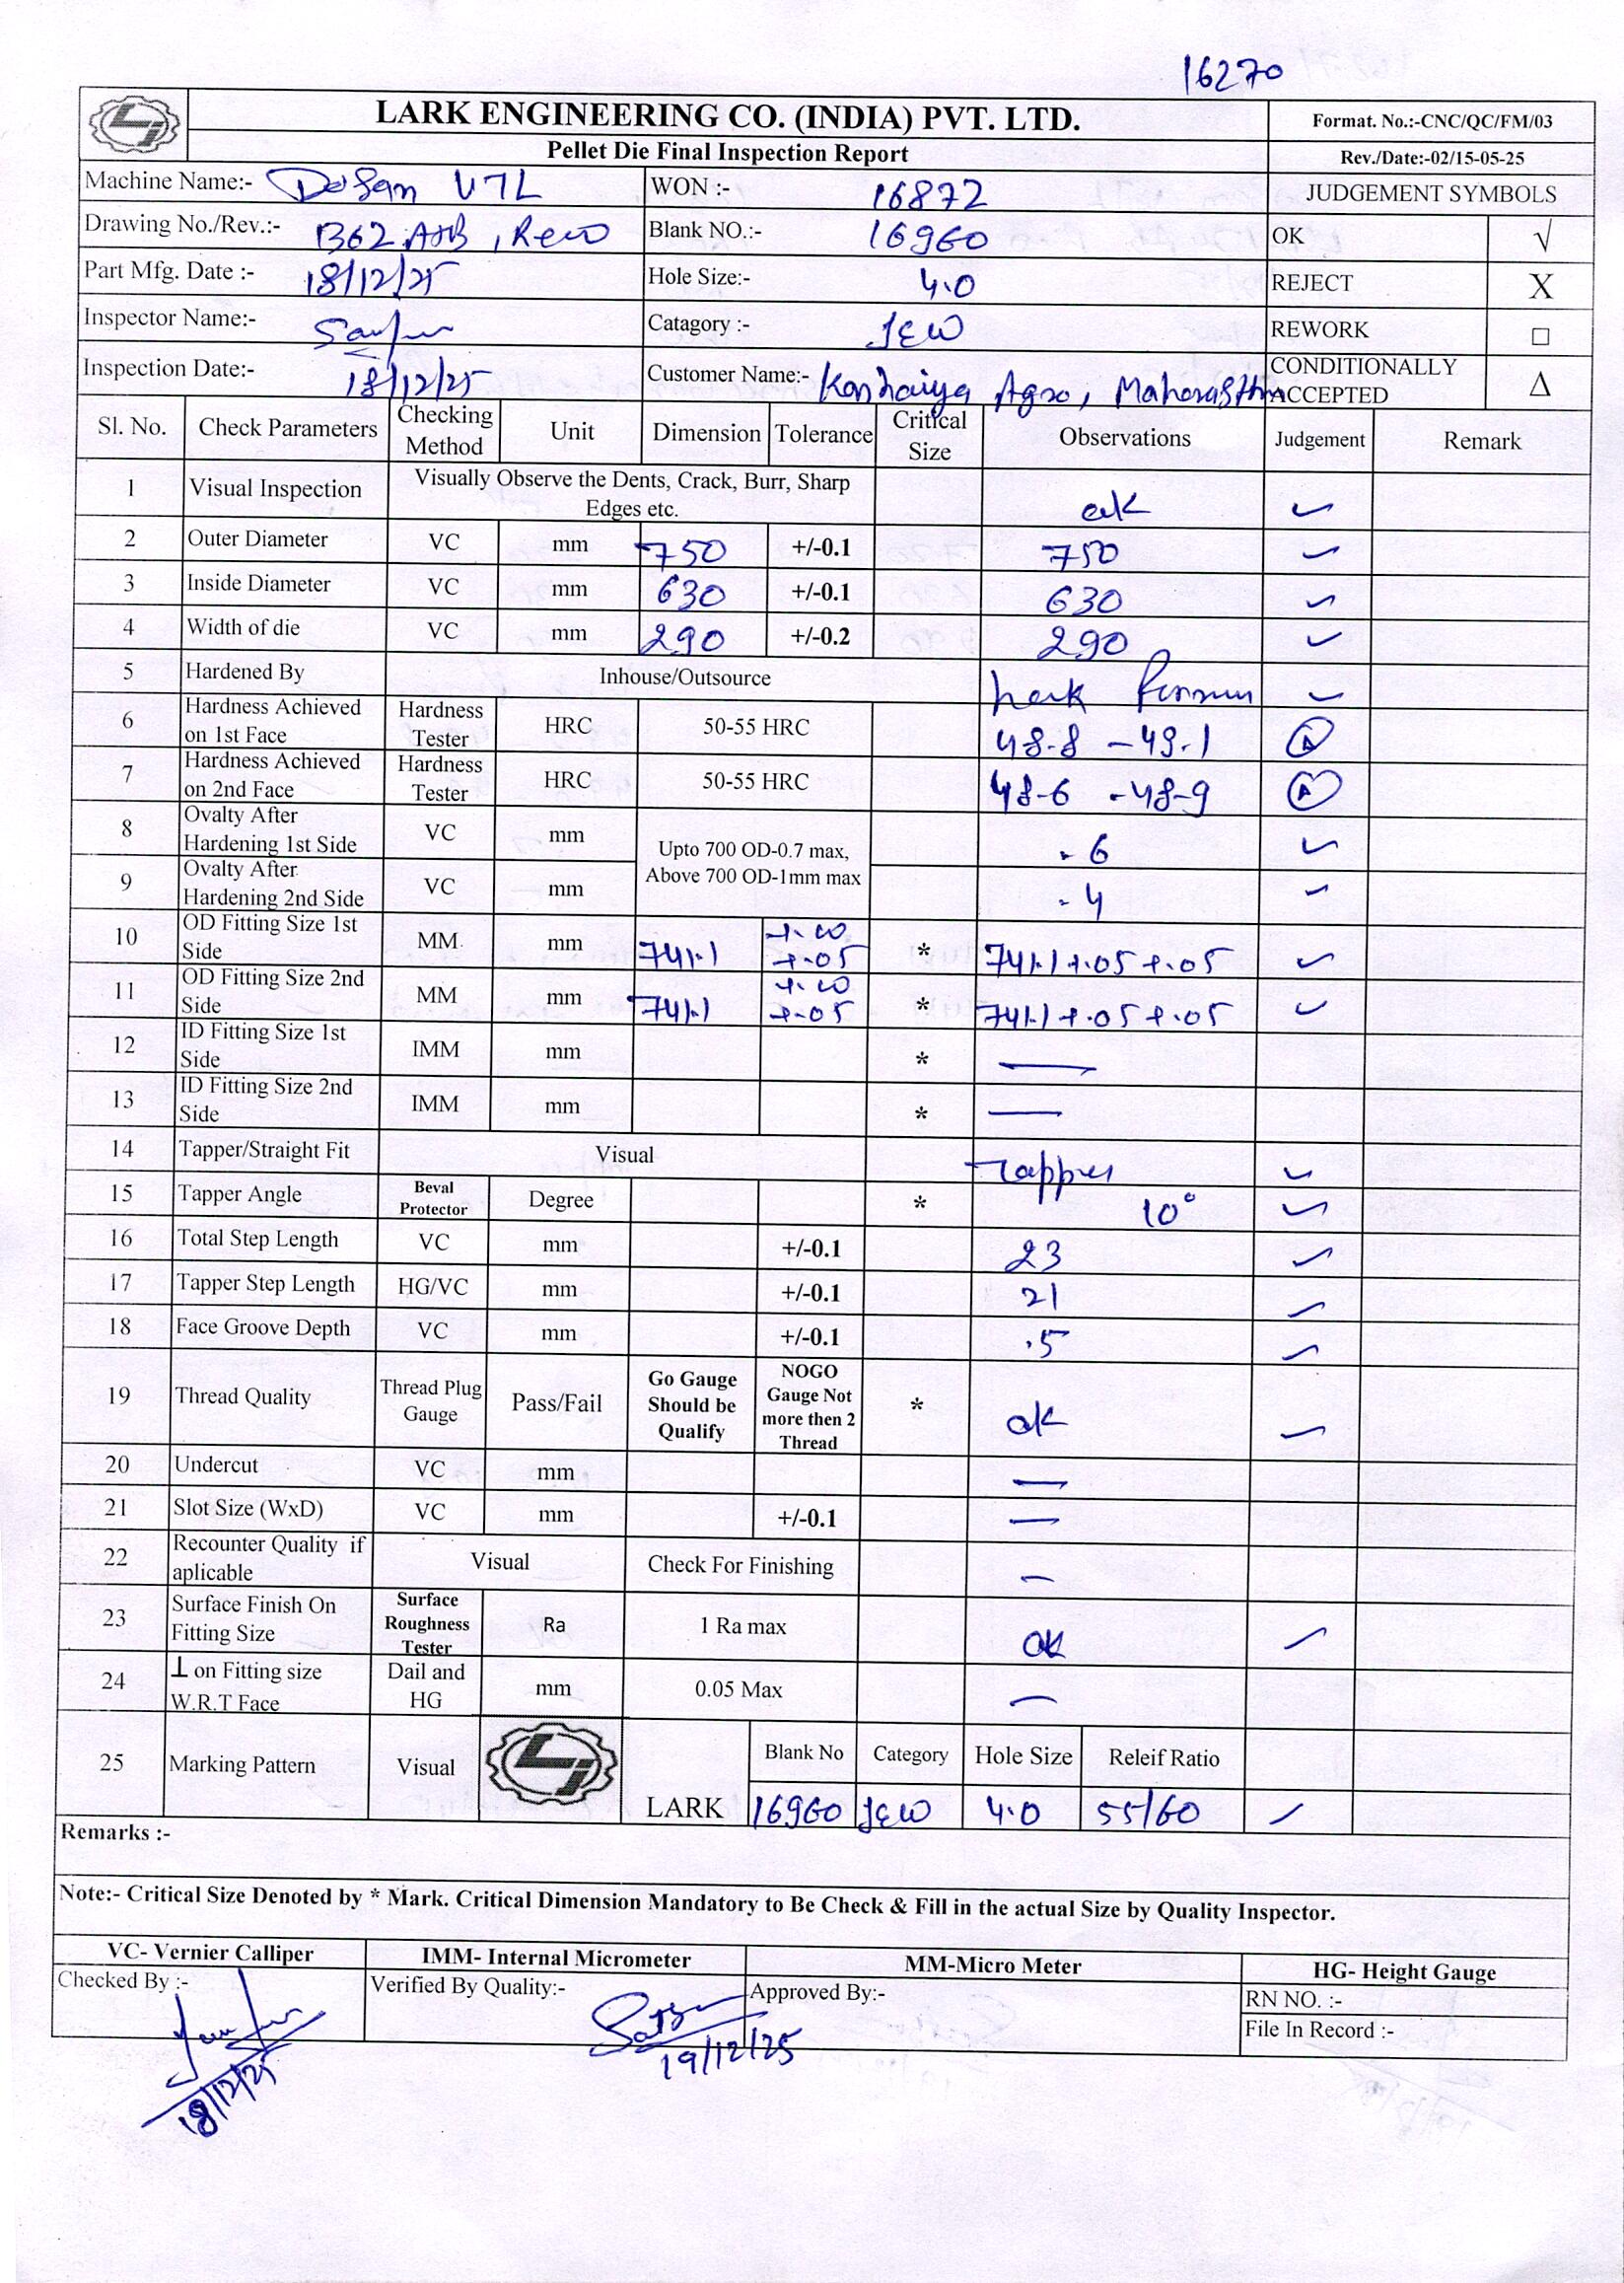 16270
LARK ENGINEERING CO. (INDIA) PVT. LTD.
Format. No.:-CNC/QC/FM/03
Pellet Die Final Inspection Report
Rev./Date:-02/15-05-25
Machine Name:- DoSan VTL WON :- 16872 JUDGEMENT SYMBOLS
Drawing No./Rev.:- B62 Blank NO.:- 16960 OK √
Part Mfg. Date :- 18/12/25 Hole Size:- 4.0 REJECT X
Inspector Name:- Catagory :- JEW REWORK □
Inspection Date:- 18/12/25 Customer Name:- Kanhaiya Agro, Maharashtra CONDITIONALLY ACCEPTED Δ
Sl. No. Check Parameters Checking Method Unit Dimension Tolerance Critical Size Observations Judgement Remark
1 Visual Inspection Visually Observe the Dents, Crack, Burr, Sharp Edges etc. ok ✓
2 Outer Diameter VC mm 750 +/-0.1 750 ✓
3 Inside Diameter VC mm 630 +/-0.1 630 ✓
4 Width of die VC mm 290 +/-0.2 290 ✓
5 Hardened By Inhouse/Outsource Lark ✓
6 Hardness Achieved on 1st Face Hardness Tester HRC 50-55 HRC 48.8 - 49.1
7 Hardness Achieved on 2nd Face Hardness Tester HRC 50-55 HRC 48.6 - 48.9
8 Ovalty After Hardening 1st Side VC mm Upto 700 OD-0.7 max, Above 700 OD-1mm max .6 ✓
9 Ovalty After Hardening 2nd Side VC mm .4 ✓
10 OD Fitting Size 1st Side MM mm 741.1 +.10 +.05 * 741.1 +.05 +.05 ✓
11 OD Fitting Size 2nd Side MM mm 741.1 +.10 +.05 * 741.1 +.05 +.05 ✓
12 ID Fitting Size 1st Side IMM mm * —
13 ID Fitting Size 2nd Side IMM mm * —
14 Tapper/Straight Fit Visual Tapper ✓
15 Tapper Angle Beval Protector Degree * 10° ✓
16 Total Step Length VC mm +/-0.1 23 ✓
17 Tapper Step Length HG/VC mm +/-0.1 21 ✓
18 Face Groove Depth VC mm +/-0.1 .5 ✓
19 Thread Quality Thread Plug Gauge Pass/Fail Go Gauge Should be Qualify NOGO Gauge Not more then 2 Thread * ok ✓
20 Undercut VC mm —
21 Slot Size (WxD) VC mm +/-0.1 —
22 Recounter Quality if aplicable Visual Check For Finishing —
23 Surface Finish On Fitting Size Surface Roughness Tester Ra 1 Ra max ok ✓
24 ⊥ on Fitting size W.R.T Face Dail and HG mm 0.05 Max —
25 Marking Pattern Visual LARK Blank No Category Hole Size Releif Ratio
16960 JEW 4.0 55/60 ✓
Remarks :-
Note:- Critical Size Denoted by * Mark. Critical Dimension Mandatory to Be Check & Fill in the actual Size by Quality Inspector.
VC- Vernier Calliper IMM- Internal Micrometer MM-Micro Meter HG- Height Gauge
Checked By :- Verified By Quality:- Approved By:- RN NO. :-
File In Record :-
18/12/25 19/12/25